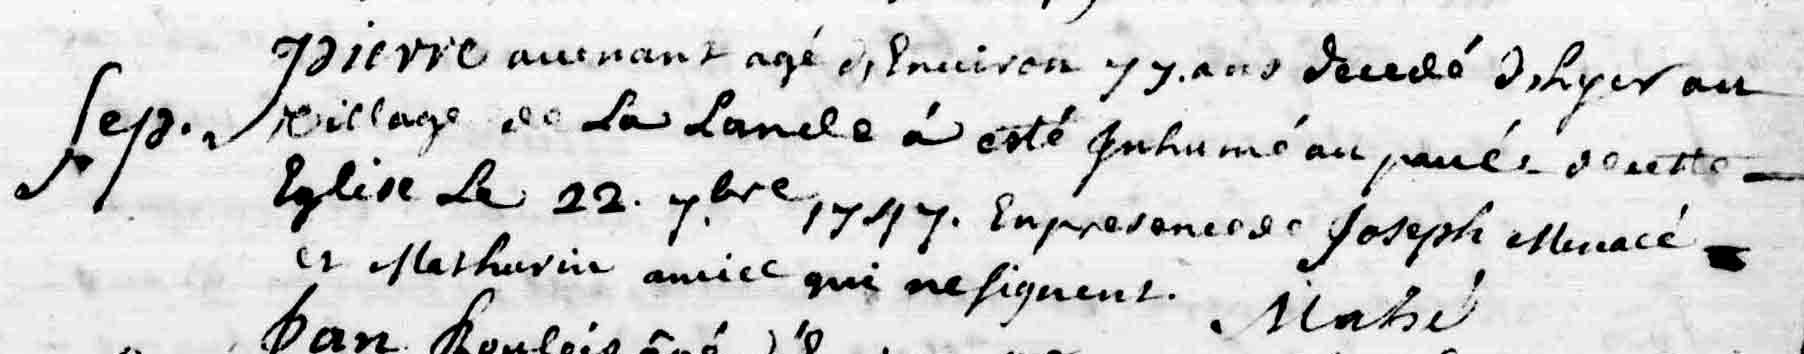 Pierre auenant agé d'Enuiron 77. ans decedé d'hyer au
Sep. village de La Lande á esté Inhumé au paué de cette
Eglise Le 22. 7.bre 1747. En presence de Joseph Menacé
et Mathurin amice qui ne signent.
Mahé
Jan